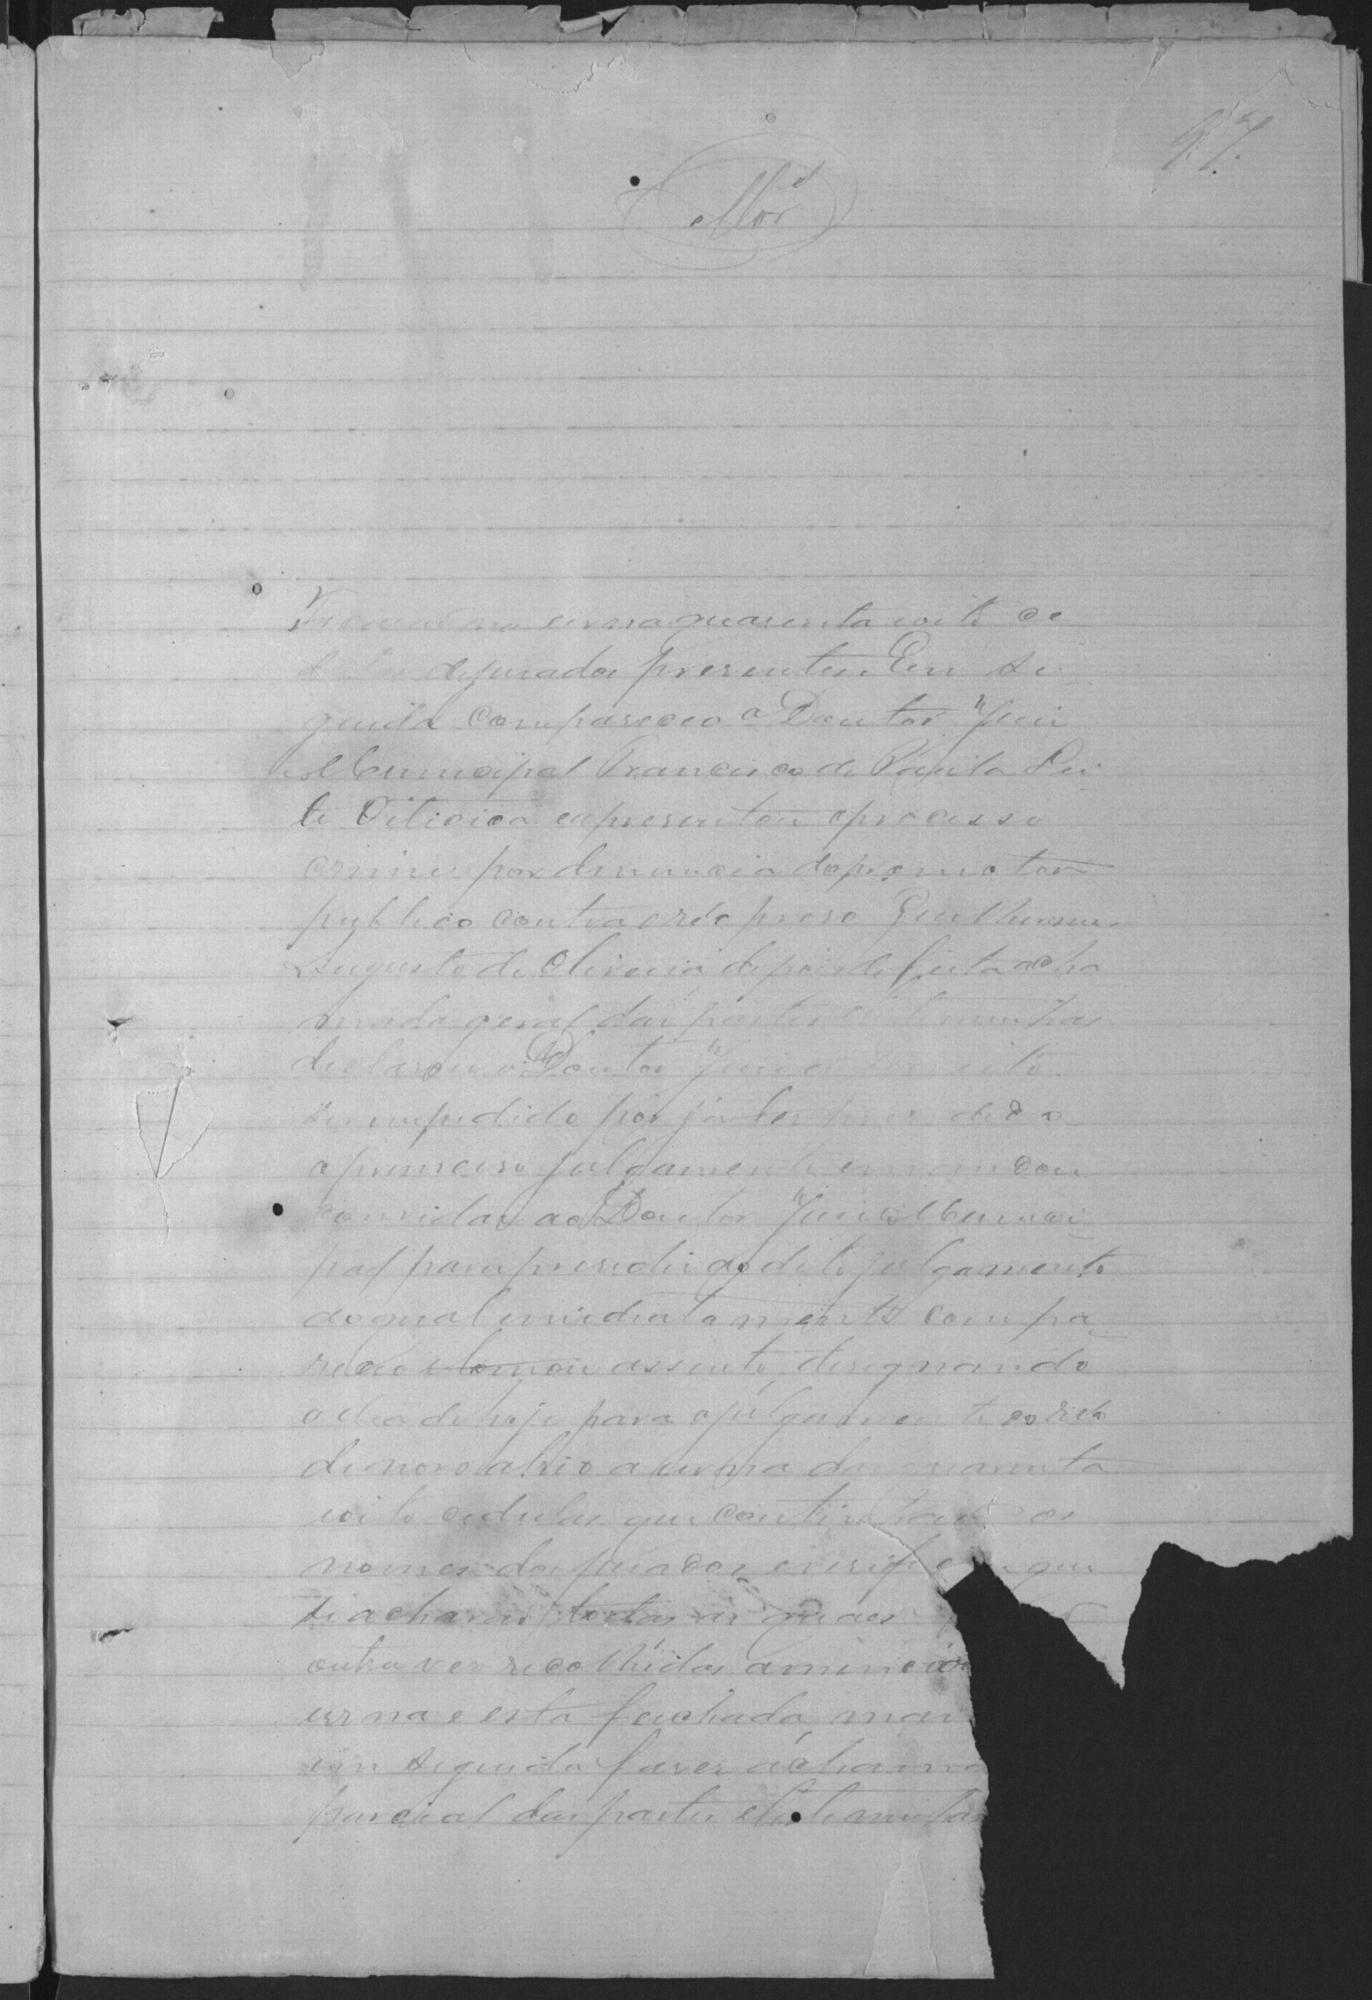 97.
Mor
na urna quarenta oito ce
de jurados presentes Em se
guida compareceo o Doutor Juis
Municipal Francisco de Paula Lei
te Oiticica e apresentou o processo
crime por denuncia do promotor
publico contra o réo preso Guilherme
Augusto de Oliveira, depois de feita a cha
mada geral das partes e testemunhas
declarou o Doutor Juis de Direito
ser impedido por já ter presidido
o primeiro julgamento e mandou
convidar ao Doutor Juis Munici
pal para presidir ao dito julgamento
ao qual immediatamente compa
receo e tomou assento, designando
o dia de hoje para o julgamento do réo
de novo abrio a urna das quarenta
oito cedulas que continhão os
nomes dos jurados e verificou que
se acharão todas as quaes
outra vez recolhidas a mencion
urna e esta fechada, man
em seguida fazer a chama
parcial das partes e testemunhas